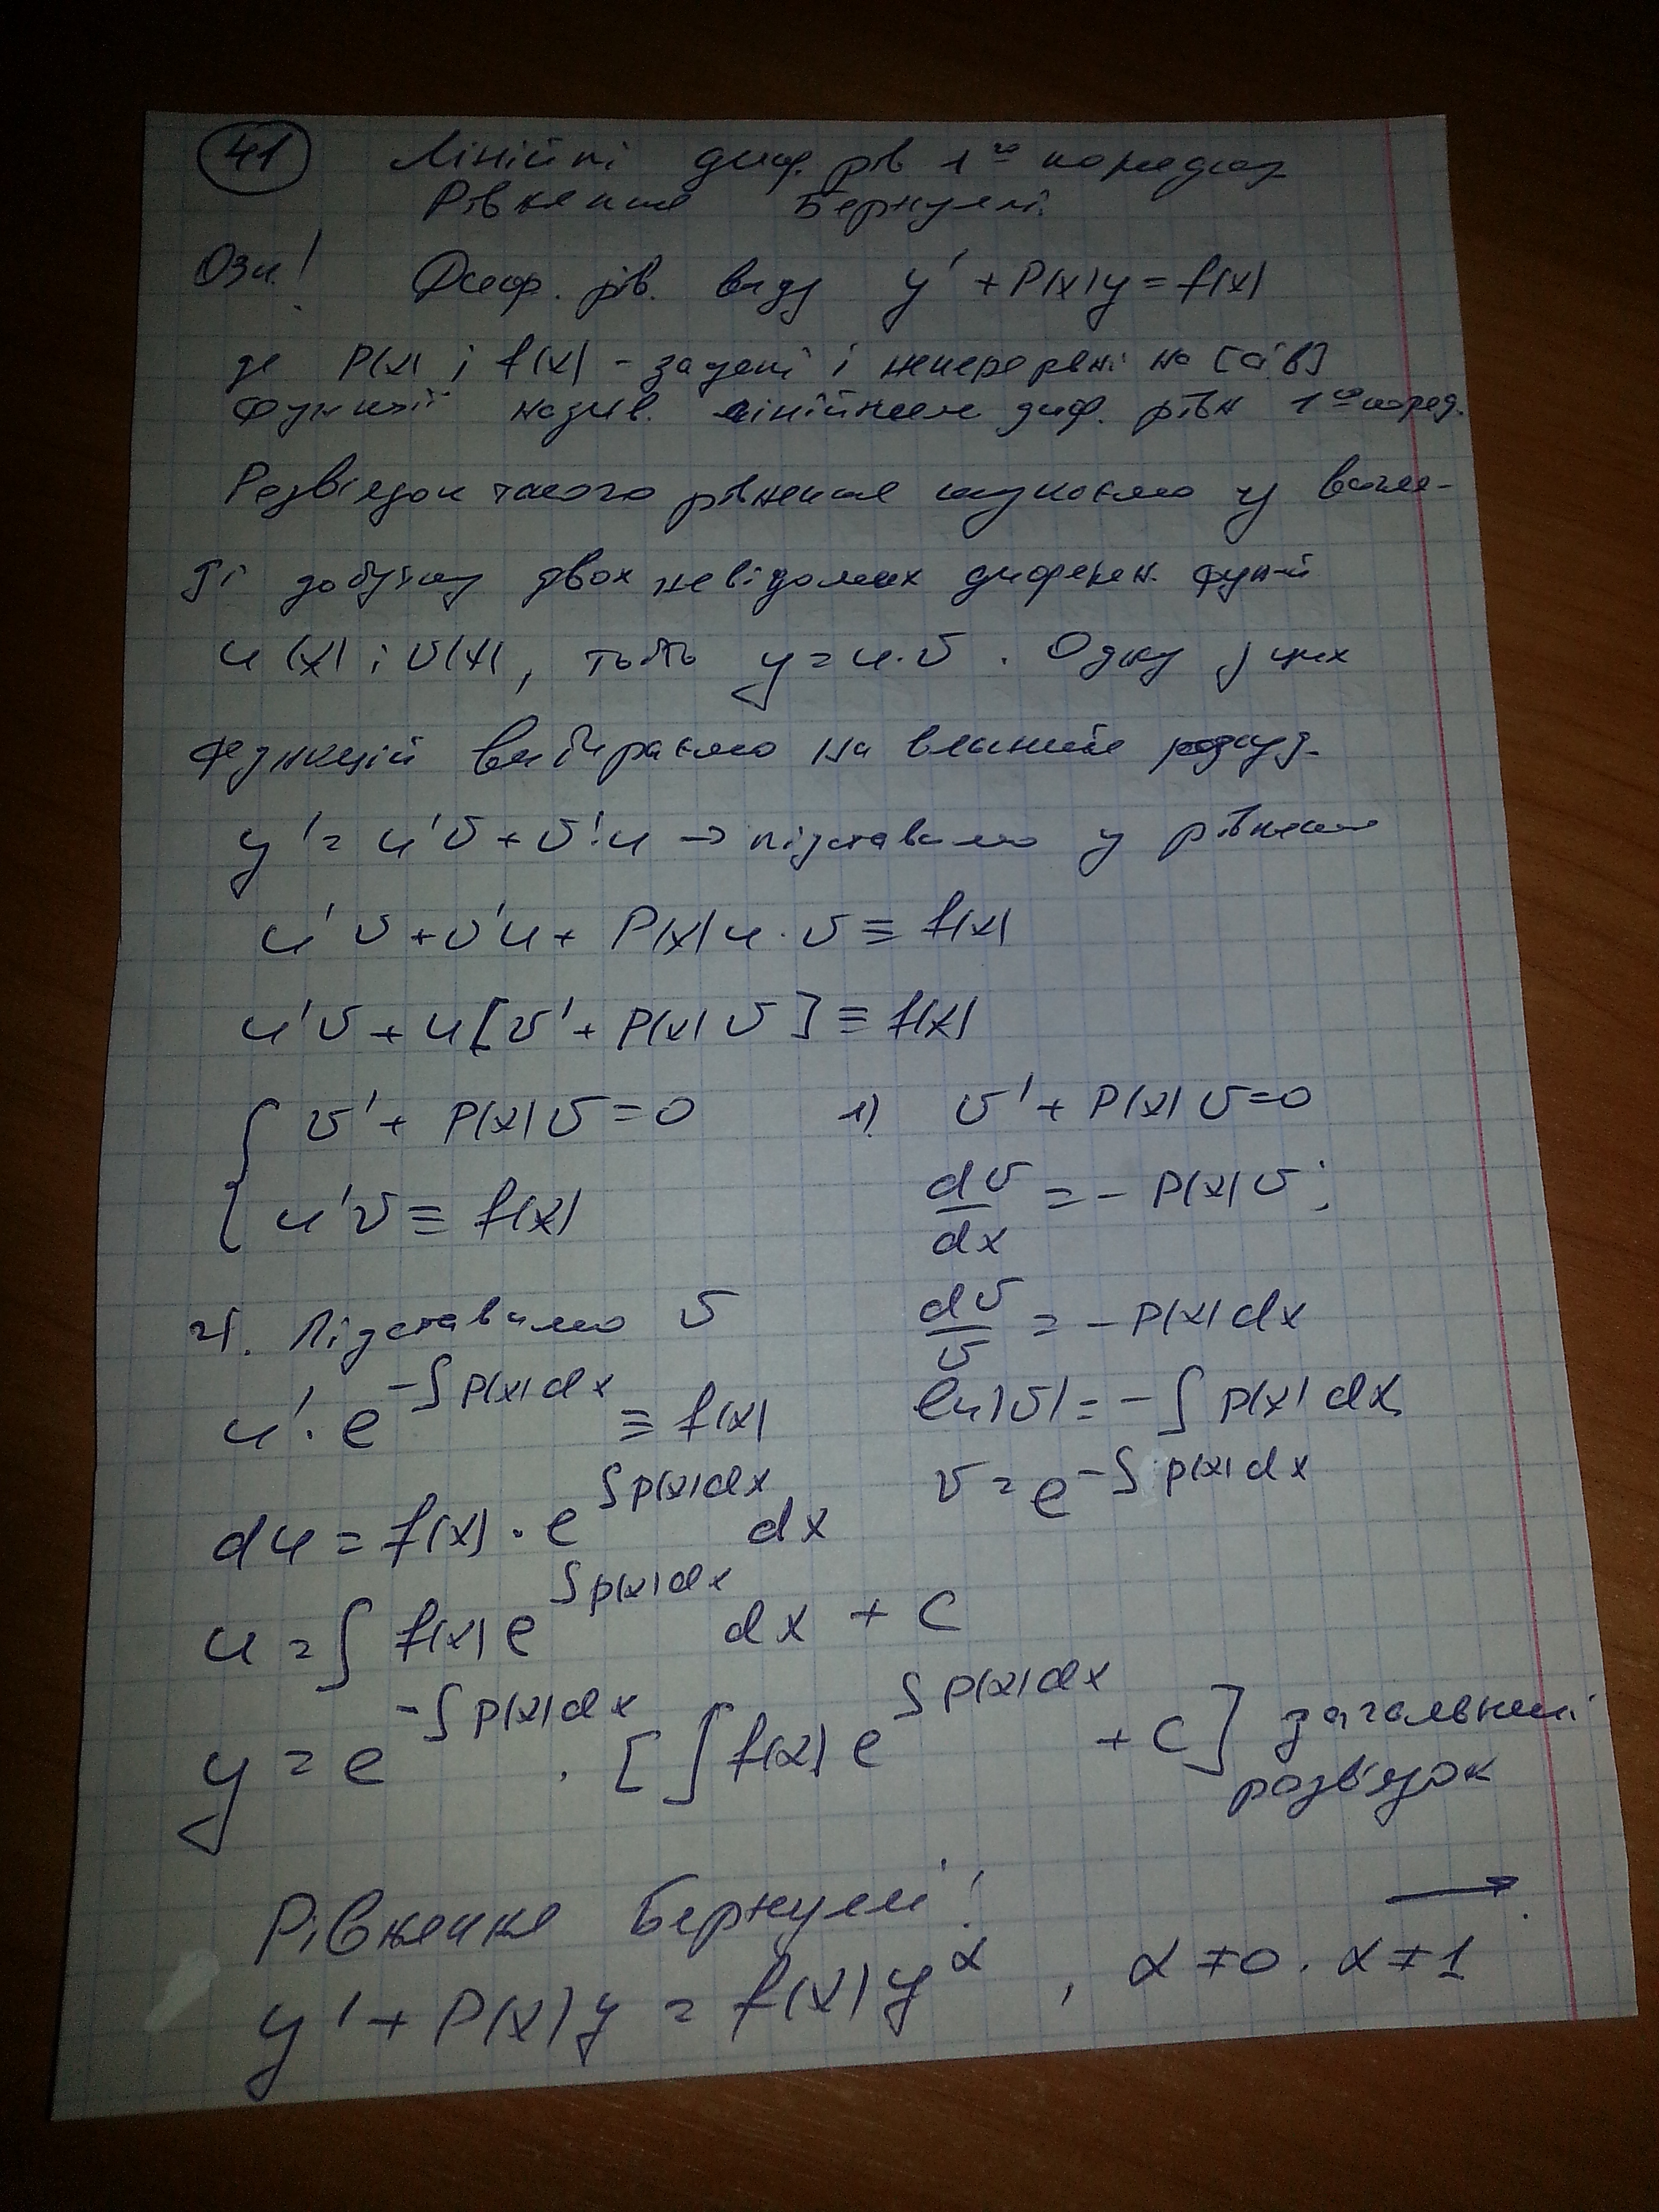 41 Лінійні диф. рів 1го порядку
Рівняння Бернуллі.
Озн! Диф. рів. виду y' + P(x)y = f(x)
де P(x) і f(x) - задані і неперервні на [a;b]
функції назив. лінійним диф. рівн 1го поряд.
Розв'язок такого рівняння шукаємо у вигля-
ді добутку двох невідомих диферен. функц
u(x) і v(x), тобто y = u·v. Одну з цих
функцій вибираємо на власний розсуд.
y' = u'v + v'·u → підставимо у рівняння
u'v + v'u + P(x)u·v ≡ f(x)
u'v + u[v' + P(x)v] ≡ f(x)
{ v' + P(x)v = 0 1) v' + P(x)v = 0
u'v ≡ f(x) dv/dx = - P(x)v;
2). Підставимо v dv/v = - P(x)dx
u'·e^{-∫p(x)dx} ≡ f(x) ln|v| = - ∫p(x)dx
du = f(x)·e^{∫p(x)dx} dx v = e^{-∫p(x)dx}
u = ∫f(x)e^{∫p(x)dx} dx + C
y = e^{-∫p(x)dx} · [∫f(x)e^{∫p(x)dx} + C] загальний
розв'язок
Рівняння Бернуллі! →
y' + P(x)y = f(x)y^α, α ≠ 0. α ≠ 1